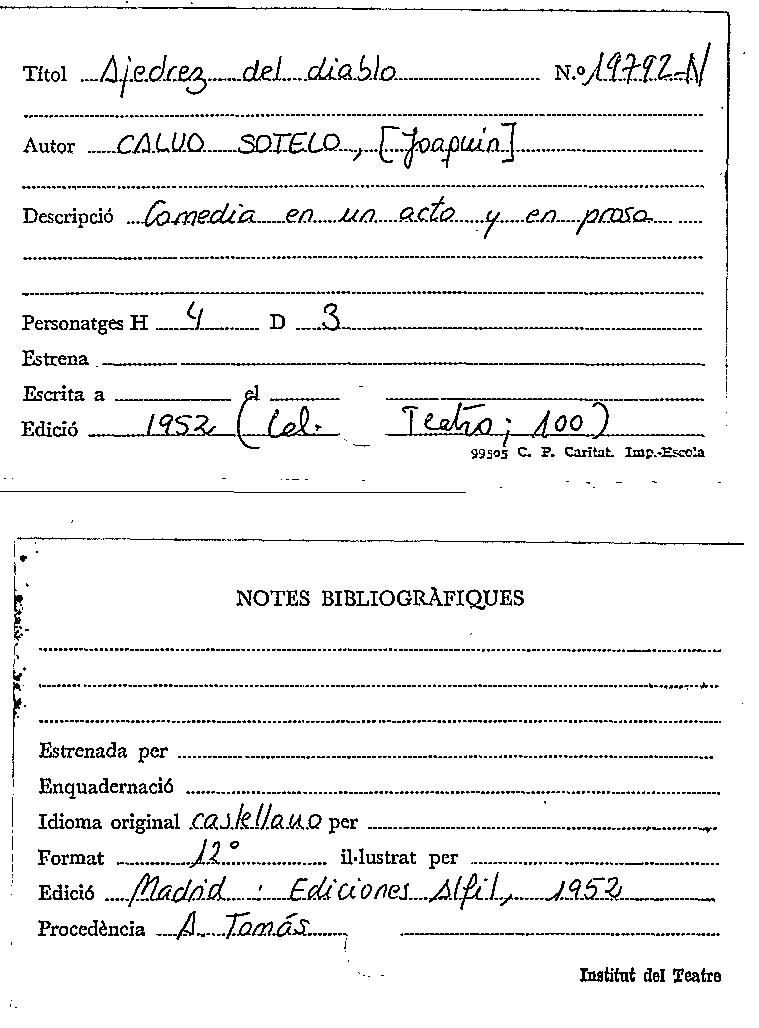 Títol Ajedrez del diablo N.º 19792-N
Autor CALVO SOTELO, [Joaquín]
Descripció Comedia en un acto y en prosa
Personatges H 4 D 3
Estrena
Escrita a el
Edició 1952 (Col. Teatro; 100)
99505 C. P. Caritat. Imp.-Escola
NOTES BIBLIOGRÀFIQUES
Estrenada per
Enquadernació
Idioma original castellano per
Format 12º il·lustrat per
Edició Madrid : Ediciones Alfil, 1952
Procedència A. Tomás
Institut del Teatre